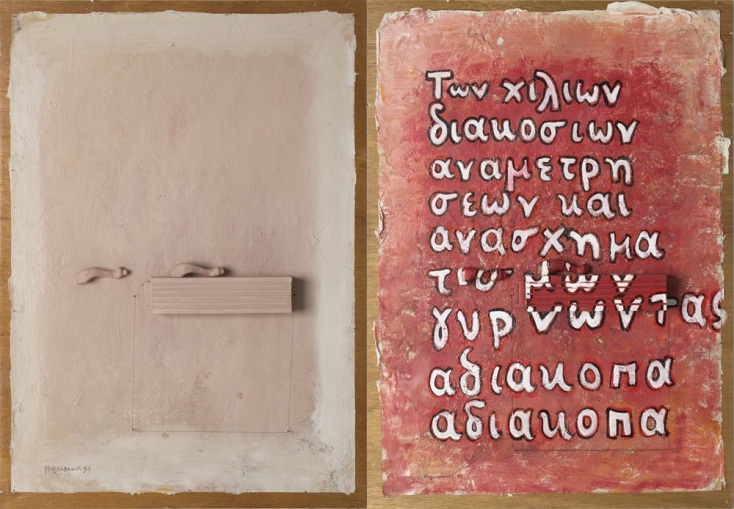 Των χιλιων
διακοσιων
αναμετρη
σεων και
ανασχημα
τισμων
γυρνωντας
αδιακοπα
αδιακοπα